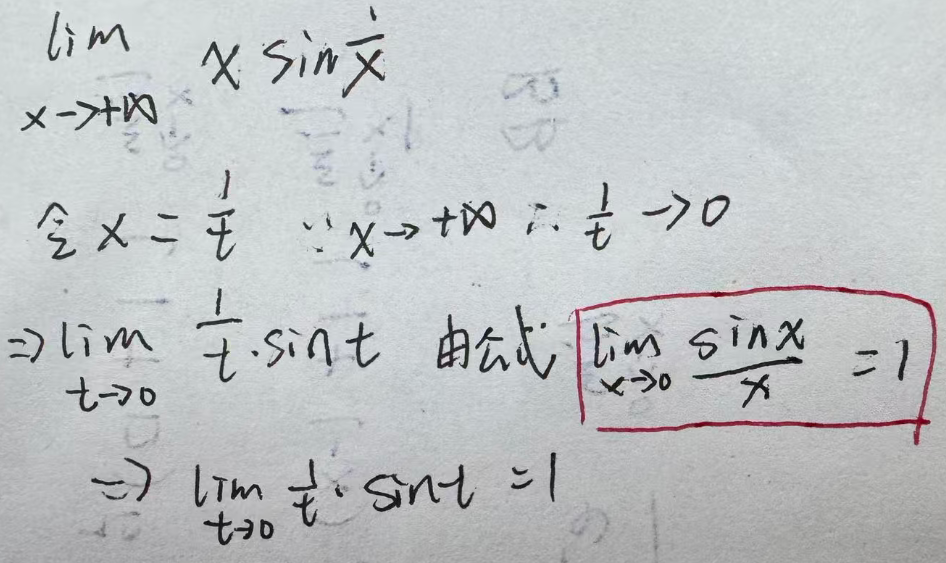 lim x→+∞ x sin 1/x
令 x = 1/t ∵ x→+∞ ∴ 1/t →0
⇒ lim t→0 1/t · sin t 由公式 lim x→0 sinx/x = 1
⇒ lim t→0 1/t · sint = 1